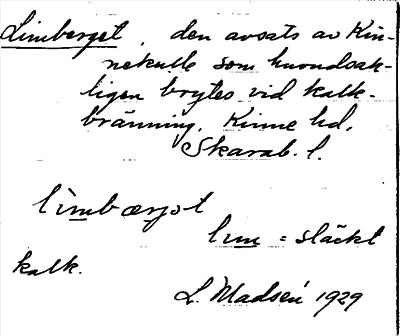 Limberget, den avsats av Kin-
nekulle som huvudsak-
ligen brytes vid kalk-
bränning. Kinne hd.
Skarab. l.
limbærjət
lim = släckt
kalk.
L. Madsén 1929